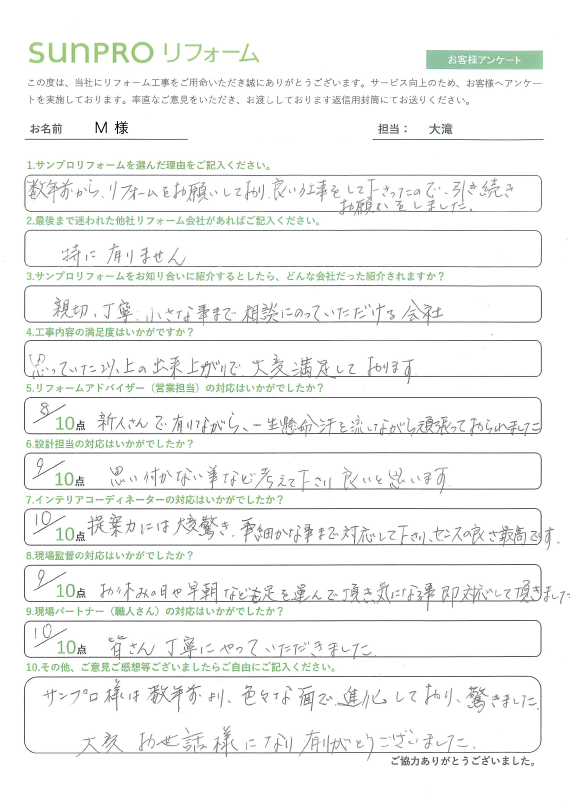 SUNPRO リフォーム
お客様アンケート
この度は、当社にリフォーム工事をご用命いただき誠にありがとうございます。サービス向上のため、お客様へアンケー
トを実施しております。率直なご意見をいただき、お渡ししております返信用封筒にてお送りください。
お名前　M 様　担当：　大滝
1.サンプロリフォームを選んだ理由をご記入ください。
数年前から、リフォームをお願いしており、良い工事をして下さったので、引き続き
お願いをしました。
2.最後まで迷われた他社リフォーム会社があればご記入ください。
特に有りません
3.サンプロリフォームをお知り合いに紹介するとしたら、どんな会社だった紹介されますか？
親切、丁寧、小さな事まで相談にのっていただける会社
4.工事内容の満足度はいかがですか？
思っていた以上の出来上がりで、大変満足しております。
5.リフォームアドバイザー（営業担当）の対応はいかがでしたか？
8/10点 新人さんで有りながら、一生懸命汗を流しながら頑張っておられました
6.設計担当の対応はいかがでしたか？
9/10点 思い付かない事など考えて下さり良いと思います。
7.インテリアコーディネーターの対応はいかがでしたか？
10/10点 提案力には大変驚き、事細かな事まで対応して下さり、センスの良さ最高です。
8.現場監督の対応はいかがでしたか？
9/10点 お休みの日や早朝など足を運んで頂き気になる事即対応して頂きました
9.現場パートナー（職人さん）の対応はいかがでしたか？
10/10点 皆さん丁寧にやっていただきました。
10.その他、ご意見ご感想等ございましたらご自由にご記入ください。
サンプロ様は数年前より、色々な面で進化しており、驚きました。
大変お世話様になり有りがとうございました。
ご協力ありがとうございました。